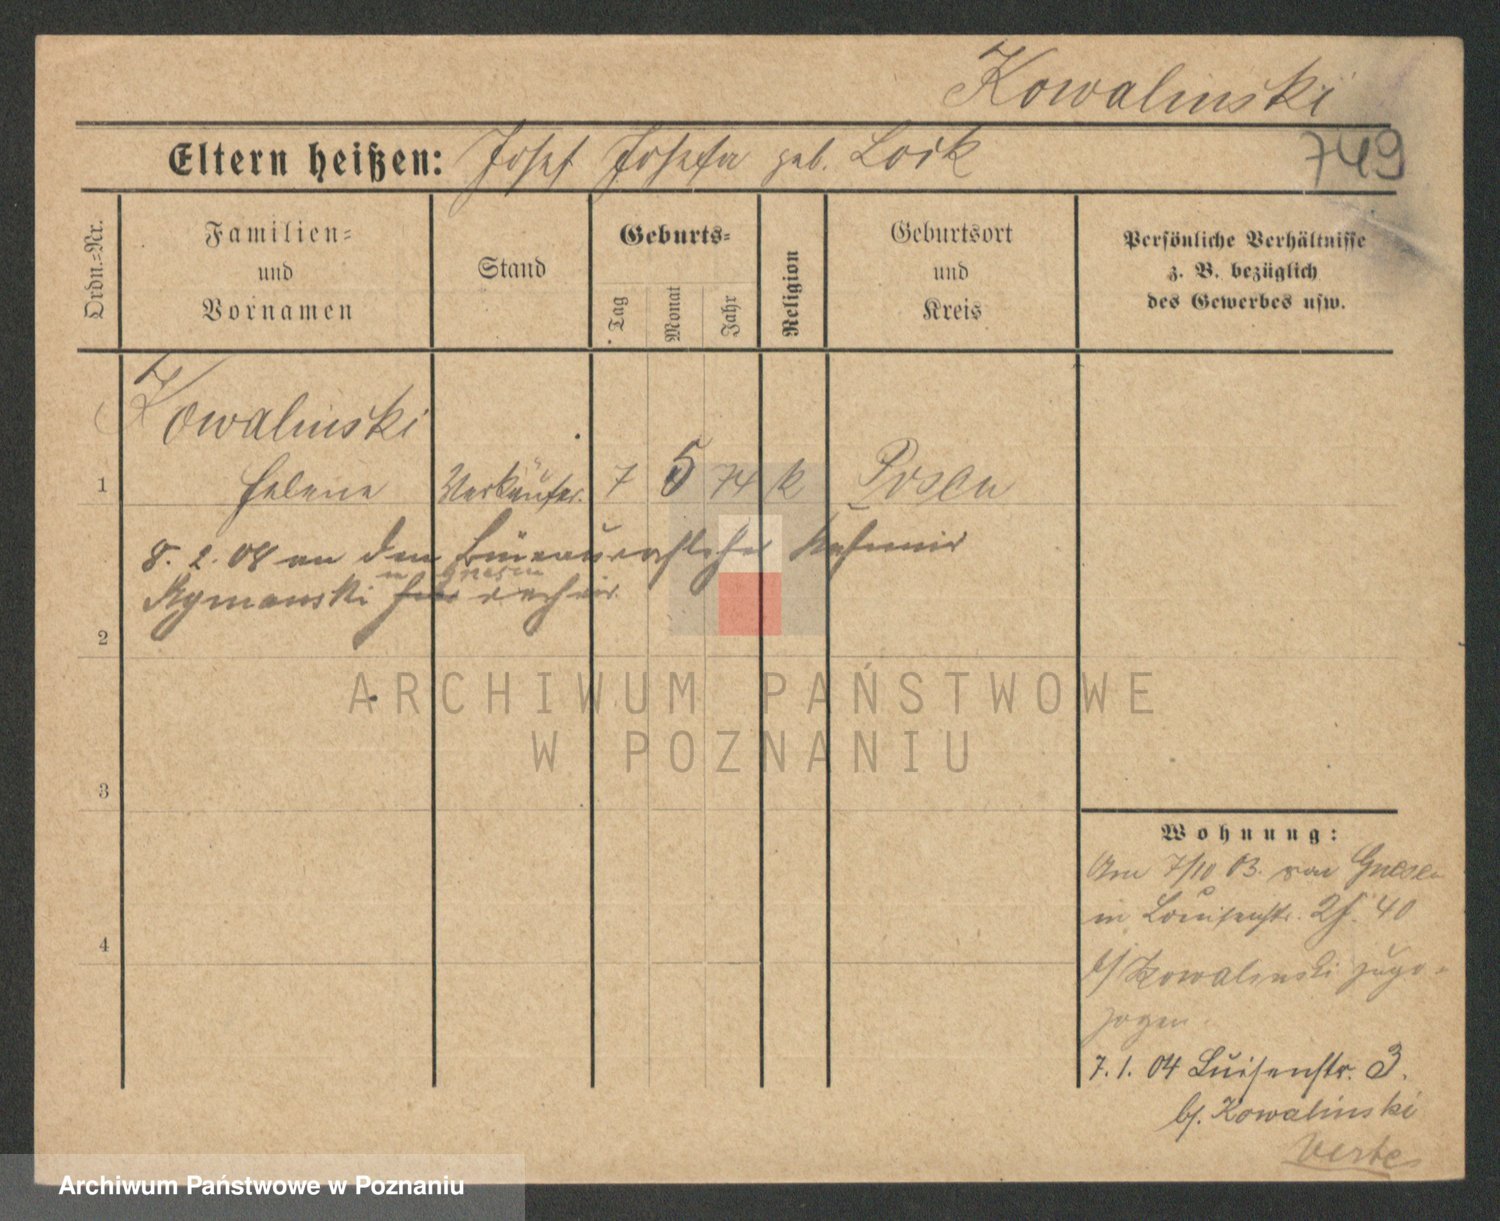 Kowalinski
749
Eltern heißen: Josef Josefa geb. Losk
Ordn.-Nr.
Familien-
und
Vornamen
Stand
Geburts-
Tag
Monat
Jahr
Religion
Geburtsort
und
Kreis
Persönliche Verhältnisse
z. B. bezüglich
des Gewerbes usw.
Kowalinski
1 Helene Verkäufer. 7 5 74 k Posen
8. 2. 08 an den
in Gnesen
2
3
4
Wohnung:
Am 7/10 03. von Gnesen
in Louisenstr. 40
b/ Kowalinski zuge-
zogen.
7. 1. 04 Luisenstr. 3.
b/. Kowalinski
Verte
ARCHIWUM PAŃSTWOWE
W POZNANIU
Archiwum Państwowe w Poznaniu